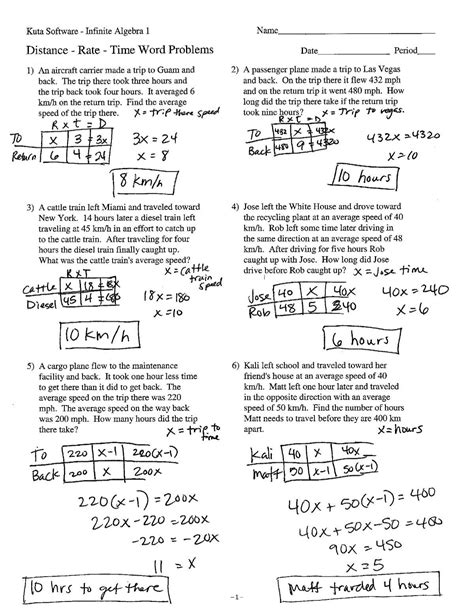 Kuta Software - Infinite Algebra 1
Name
Distance - Rate - Time Word Problems
Date Period
1) An aircraft carrier made a trip to Guam and
back. The trip there took three hours and
the trip back took four hours. It averaged 6
km/h on the return trip. Find the average
speed of the trip there. x = trip there speed
R x T = D
To x 3 = 3x
Return 6 4 = 24
3x = 24
x = 8
8 km/h
2) A passenger plane made a trip to Las Vegas
and back. On the trip there it flew 432 mph
and on the return trip it went 480 mph. How
long did the trip there take if the return trip
took nine hours? x = Trip to vegas.
R x T = D
To 432 x = 432x
Back 480 9 = 4320
432x = 4320
x = 10
10 hours
3) A cattle train left Miami and traveled toward
New York. 14 hours later a diesel train left
traveling at 45 km/h in an effort to catch up
to the cattle train. After traveling for four
hours the diesel train finally caught up.
What was the cattle train's average speed?
x = cattle
train
speed
R x T
Cattle x 18 = 18x
Diesel 45 4 = 180
18x = 180
x = 10
10 km/h
4) Jose left the White House and drove toward
the recycling plant at an average speed of 40
km/h. Rob left some time later driving in
the same direction at an average speed of 48
km/h. After driving for five hours Rob
caught up with Jose. How long did Jose
drive before Rob caught up? x = Jose time
Jose 40 x 40x
Rob 48 5 240
40x = 240
x = 6
6 hours
5) A cargo plane flew to the maintenance
facility and back. It took one hour less time
to get there than it did to get back. The
average speed on the trip there was 220
mph. The average speed on the way back
was 200 mph. How many hours did the trip
there take? x = trip to
time
To 220 x-1 220(x-1)
Back 200 x 200x
220(x-1) = 200x
220x - 220 = 200x
-220 = -20x
11 = x
10 hrs to get there
6) Kali left school and traveled toward her
friend's house at an average speed of 40
km/h. Matt left one hour later and traveled
in the opposite direction with an average
speed of 50 km/h. Find the number of hours
Matt needs to travel before they are 400 km
apart. x = hours
Kali 40 x 40x
Matt 50 x-1 50(x-1)
40x + 50(x-1) = 400
40x + 50x - 50 = 400
90x = 450
x = 5
Matt traveled 4 hours
-1-